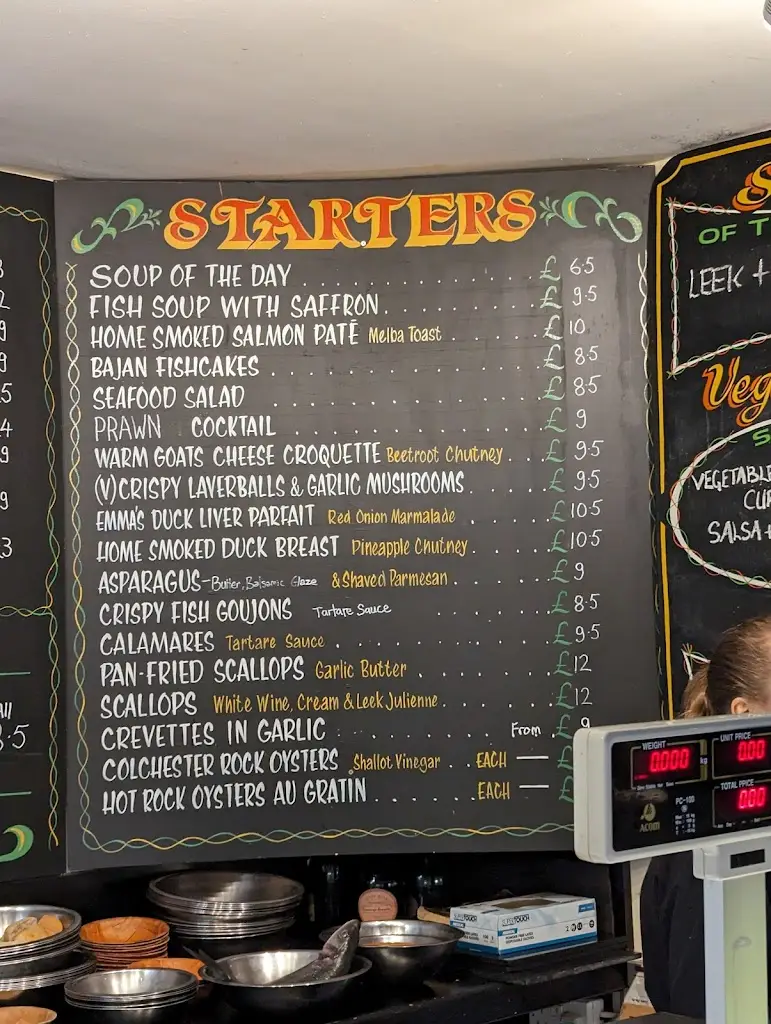 STARTERS
SOUP OF THE DAY . . . . . . . . . . . . £ 6.5
FISH SOUP WITH SAFFRON . . . . . . . . £ 9.5
HOME SMOKED SALMON PATÉ Melba Toast . . . . . £ 10
BAJAN FISHCAKES . . . . . . . . . . . . £ 8.5
SEAFOOD SALAD . . . . . . . . . . . . £ 8.5
PRAWN COCKTAIL . . . . . . . . . . . . £ 9
WARM GOATS CHEESE CROQUETTE Beetroot Chutney . . £ 9.5
(V) CRISPY LAVERBALLS & GARLIC MUSHROOMS . . . . £ 9.5
EMMA'S DUCK LIVER PARFAIT Red Onion Marmalade . . . . £ 10.5
HOME SMOKED DUCK BREAST Pineapple Chutney . . . . £ 10.5
ASPARAGUS - Butter, Balsamic Glaze & Shaved Parmesan . . . . £ 9
CRISPY FISH GOUJONS Tartare Sauce . . . . . . £ 8.5
CALAMARES Tartare Sauce . . . . . . . . £ 9.5
PAN-FRIED SCALLOPS Garlic Butter . . . . . . £ 12
SCALLOPS White Wine, Cream & Leek Julienne . . . . £ 12
CREVETTES IN GARLIC . . . . . . From . £ 9
COLCHESTER ROCK OYSTERS Shallot Vinegar . . EACH — £
HOT ROCK OYSTERS AU GRATIN . . . . . . EACH — £
OF T
LEEK +
Veg
VEGETABLE
CU
SALSA +
WEIGHT
0.000 kg
UNIT PRICE
0.00
TOTAL PRICE
0.00
PC-100
ACOM